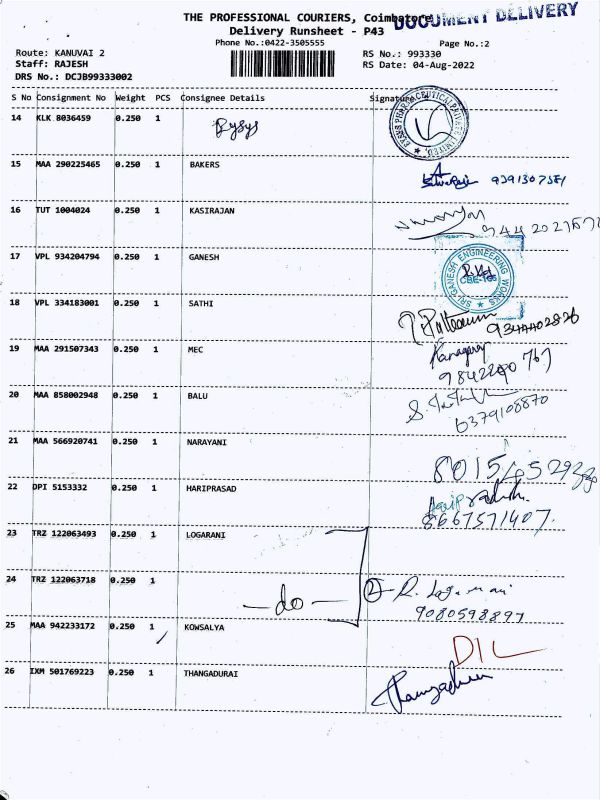 THE PROFESSIONAL COURIERS, Coimbatore
DOCUMENT DELIVERY
Delivery Runsheet - P43
Phone No.:0422-3505555
Page No.:2
Route: KANUVAI 2
RS No.: 993330
Staff: RAJESH
RS Date: 04-Aug-2022
DRS No.: DCJB99333002
S No Consignment No Weight PCS Consignee Details Signature
14 KLK 8036459 0.250 1 Rysys
15 MAA 290225465 0.250 1 BAKERS
16 TUT 1004024 0.250 1 KASIRAJAN
17 VPL 934204794 0.250 1 GANESH
SRI GANESH ENGINEERING WORKS
18 VPL 334183001 0.250 1 SATHI
9344402826
19 MAA 291507343 0.250 1 MEC
Kanagaraj
20 MAA 858002948 0.250 1 BALU
6379108870
21 MAA 566920741 0.250 1 NARAYANI
22 DPI 5153332 0.250 1 HARIPRASAD
Hariprasath.
8667571407.
23 TRZ 122063493 0.250 1 LOGARANI
24 TRZ 122063718 0.250 1 —do— 2 R. Logamani
9080598897
25 MAA 942233172 0.250 1 KOWSALYA
DIL
26 IXM 501769223 0.250 1 THANGADURAI
Thangadurai